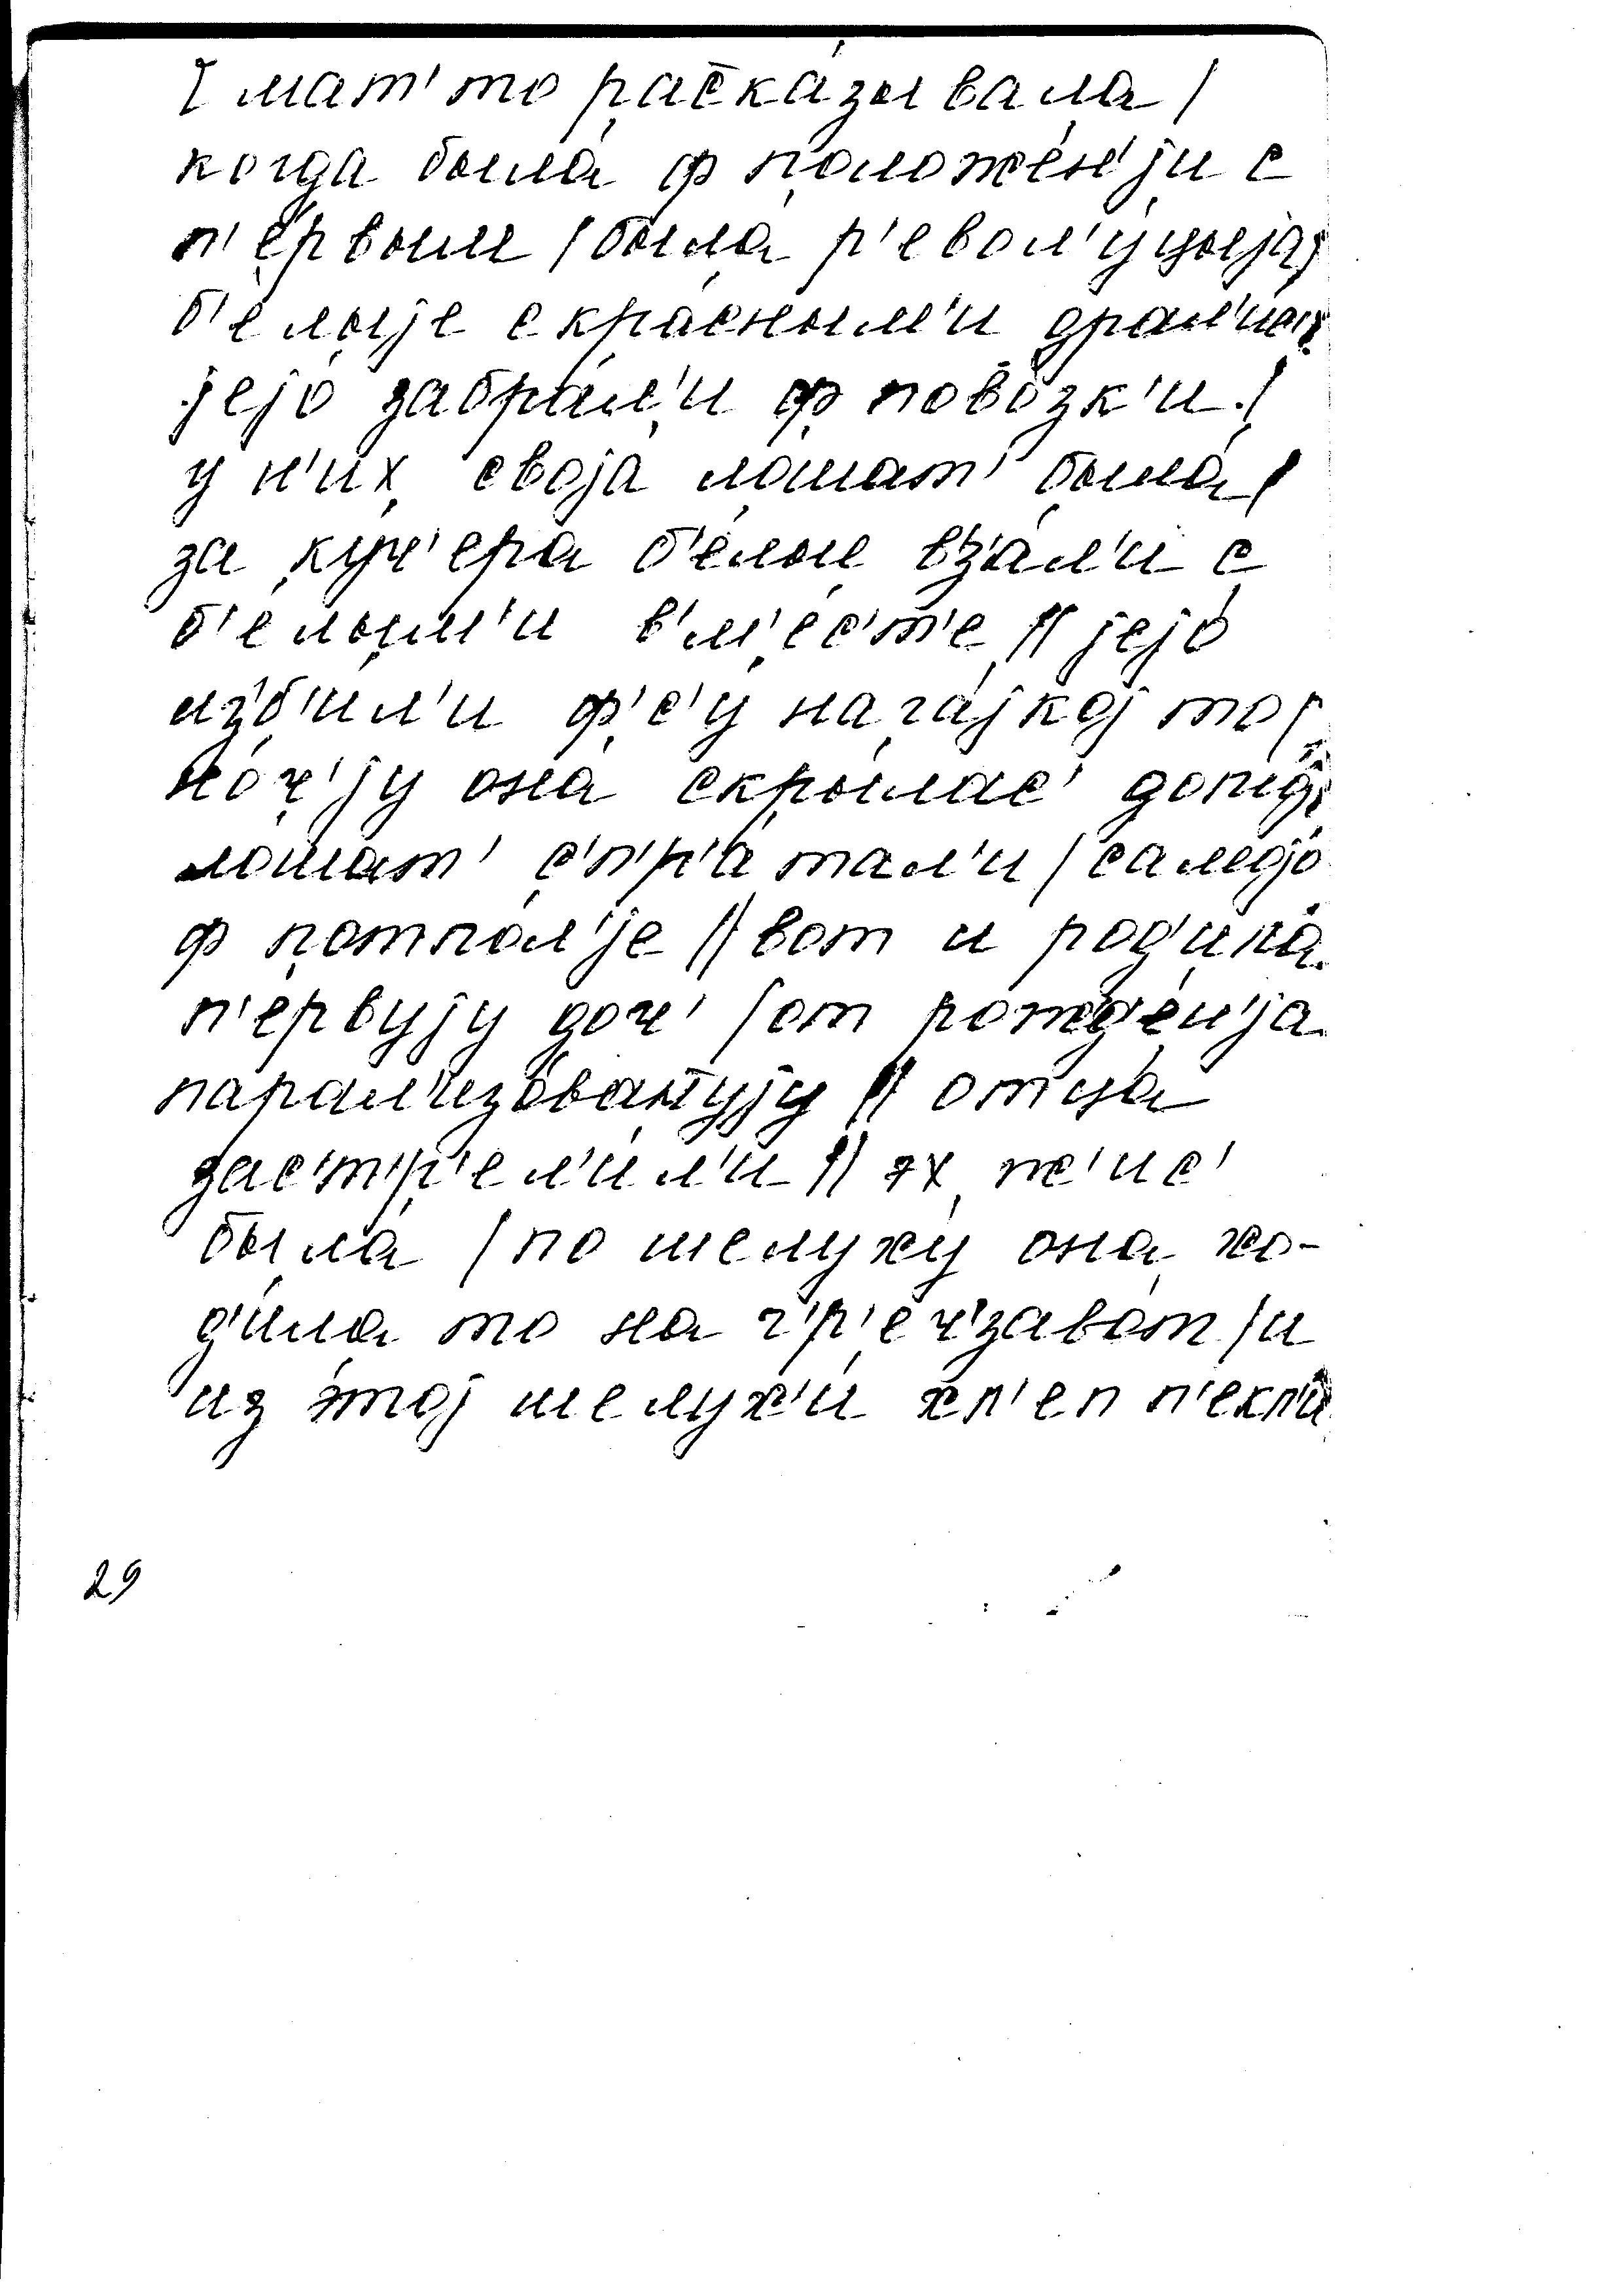 [ мат' то рас̄ка́зывала /
когда была́ ф положе́н'jи с
п'е́рвым / была́ р'евол'у́цыjа /
б'е́лыjе с кра́сным'и драл'и́с' /
jejо́ забра́л'и ф пово́зк'и /
у н'их своjа́ ло́шат' была́ /
за ку́ч'ера б'е́лыи вз'а́л'и с
б'е́лым'и в'м'е́с'т'е // jejо́
изб'и́л'и ф'с'у́ нага́jкоj то /
но́ч'jу она́ скры́лас'
ло́шат' с'п'р'а́тал'и / саму́jо
ф потпо́л'jе // вот и род'ила́
п'е́рвуjу доч' / от рожд'е́н'jа
парал'изо́ван̄уjу // отца́
застр'ел'и́л'и // эх жыс'
была́ / по шелуху́ она хо-
д'и́ла то на г'р'еч'заво́т / и
из э́тоj шелух'и́ хл'еп п'екл'и́
29